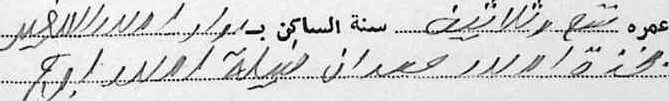 عمره تسع وثلاثين سنة الساكن بـ دوار اولاد الصغير
فخذة اولاد حمدان قبيلة اولاد